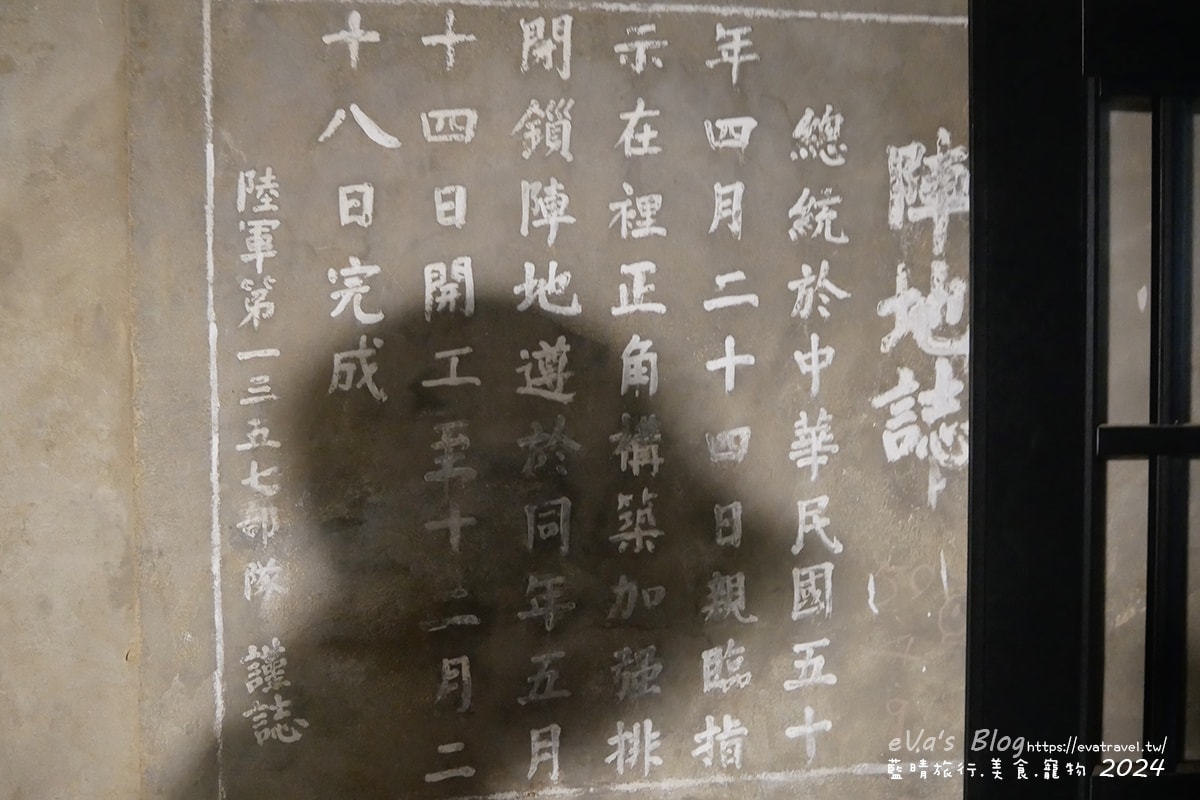 陣地誌
總統於中華民國五十
年四月二十四日親臨指
示在裡正角構築加强排
閉鎖陣地遵於同年五月
十四日開工至十二月二
十八日完成
陸軍第一三五七部隊 謹誌
eva's Blog https://evatravel.tw/
藍晴旅行.美食.寵物 2024